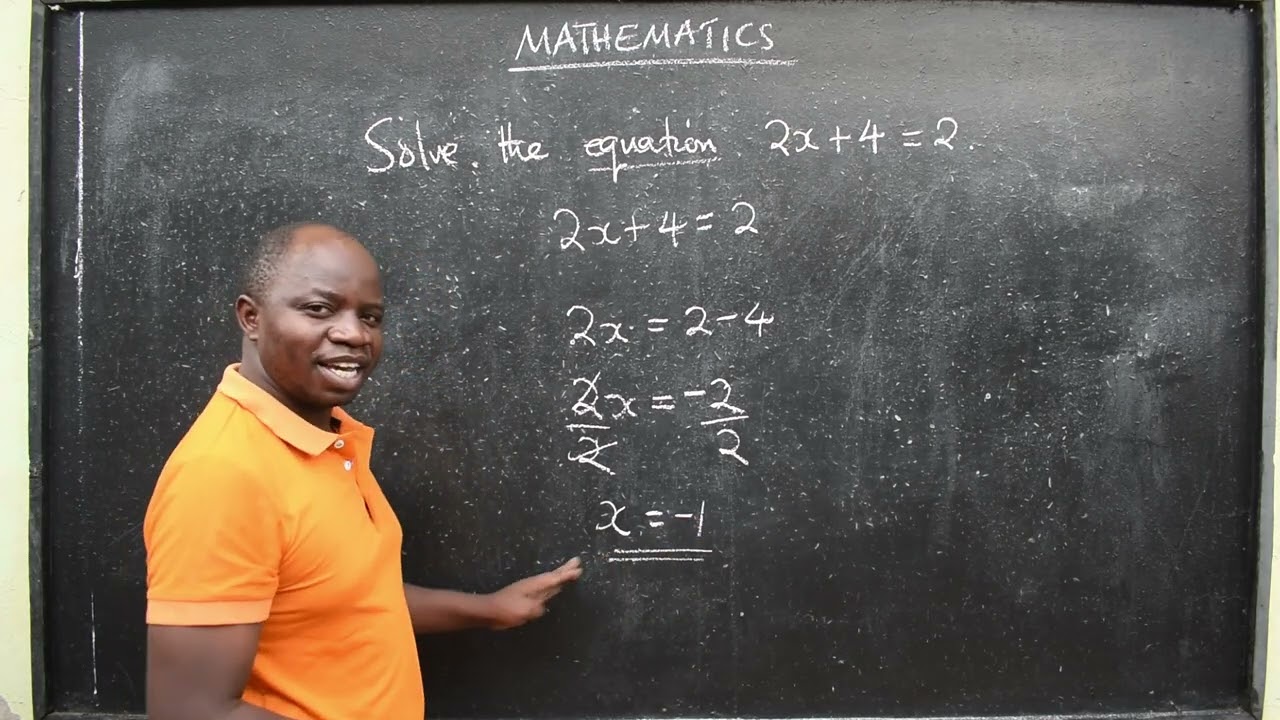 MATHEMATICS
Solve the equation 2x + 4 = 2.
2x + 4 = 2
2x = 2 - 4
2x = -2
2 2
x = -1